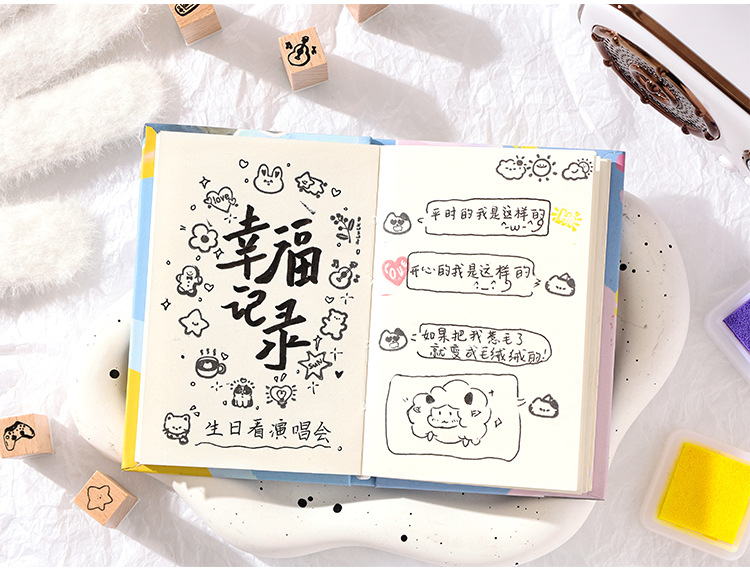 love
幸福
记录
生日看演唱会
平时的我是这样的
^w^
love
开心的我是这样的
^_^
如果把我惹毛了
就变成毛绒绒的!